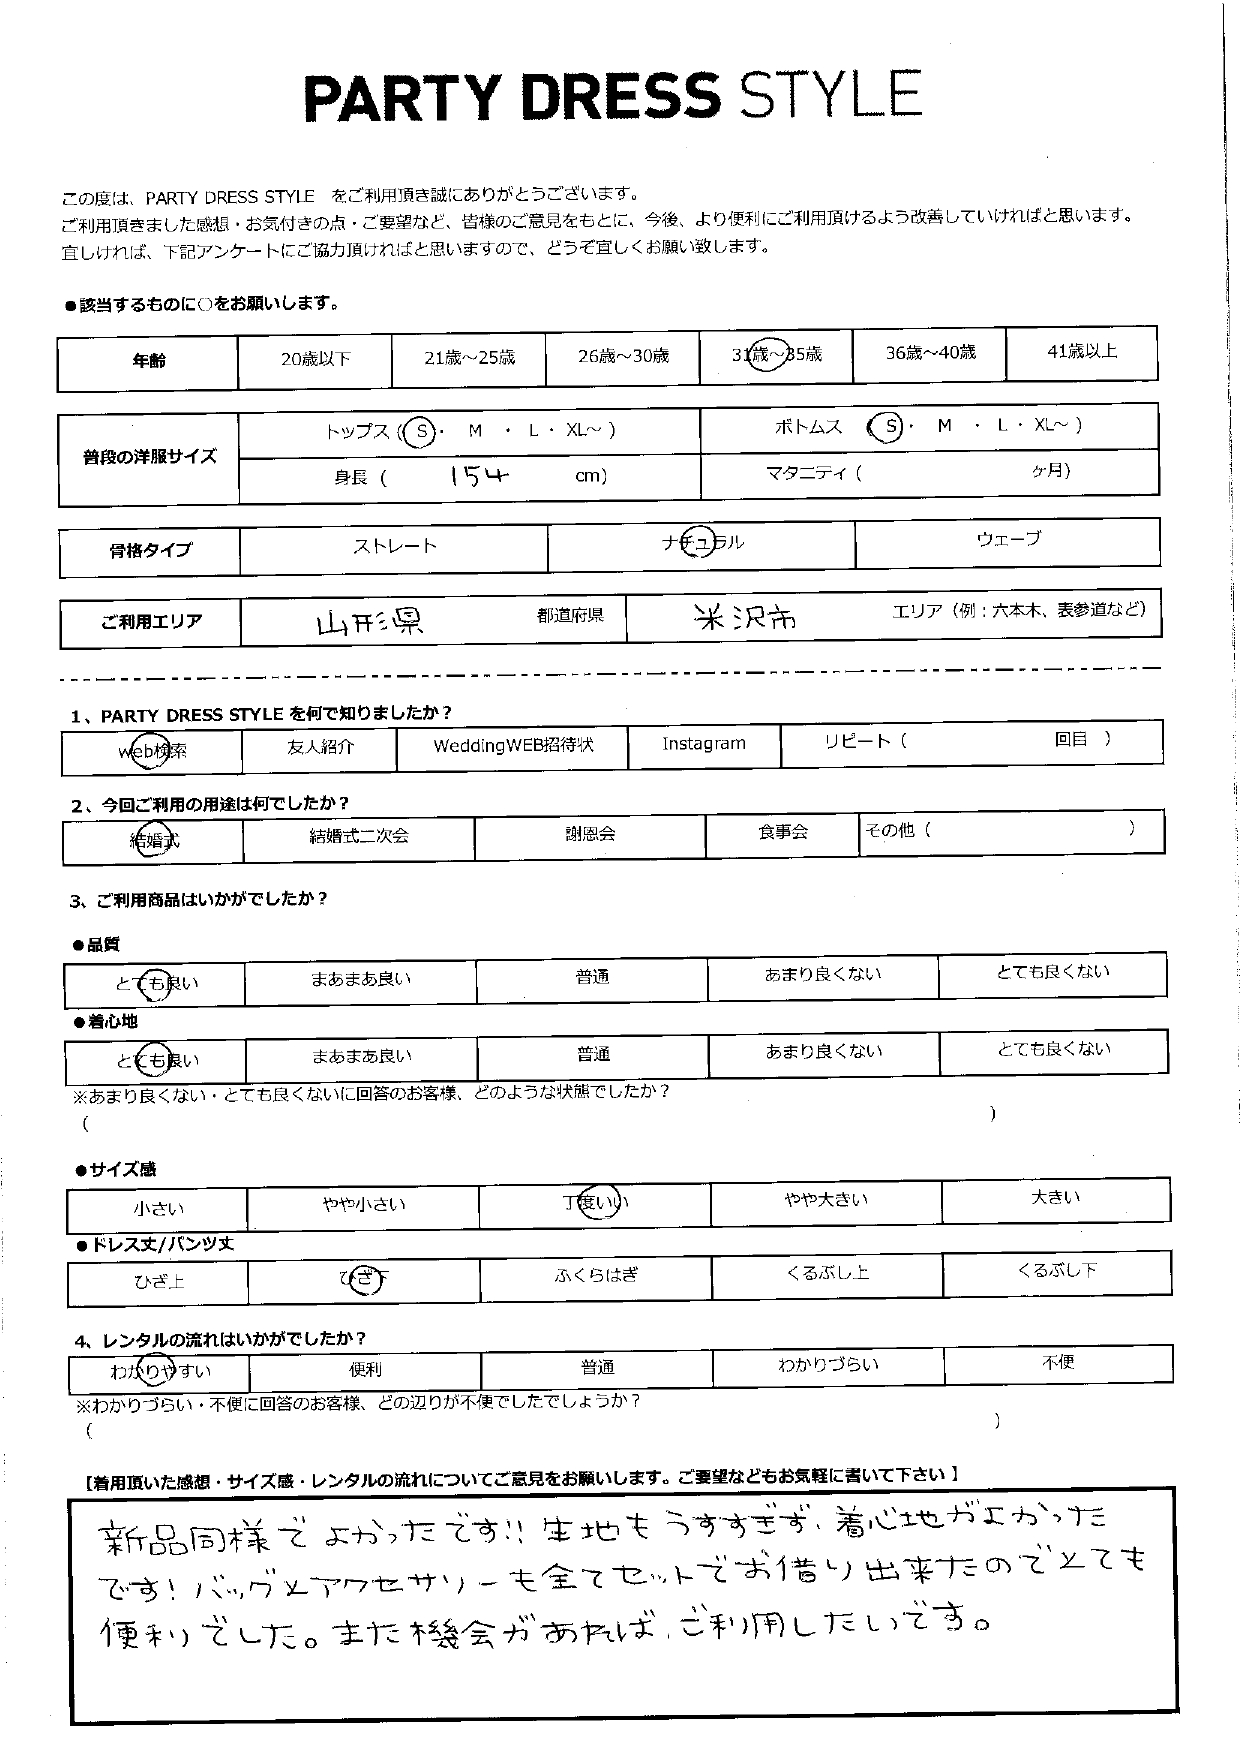 PARTY DRESS STYLE
この度は、PARTY DRESS STYLE をご利用頂き誠にありがとうございます。
ご利用頂きました感想・お気付きの点・ご要望など、皆様のご意見をもとに、今後、より便利にご利用頂けるよう改善していければと思います。
宜しければ、下記アンケートにご協力頂ければと思いますので、どうぞ宜しくお願い致します。
●該当するものに○をお願いします。
年齢 20歳以下 21歳～25歳 26歳～30歳 31歳～35歳 36歳～40歳 41歳以上
普段の洋服サイズ トップス ( S ・ M ・ L ・ XL～ ) ボトムス ( S ・ M ・ L ・ XL～ )
身長 ( 154 cm) マタニティ ( ヶ月)
骨格タイプ ストレート ナチュラル ウェーブ
ご利用エリア 山形県 都道府県 米沢市 エリア（例：六本木、表参道など）
1、PARTY DRESS STYLE を何で知りましたか？
web検索 友人紹介 WeddingWEB招待状 Instagram リピート ( 回目 )
2、今回ご利用の用途は何でしたか？
結婚式 結婚式二次会 謝恩会 食事会 その他 ( )
3、ご利用商品はいかがでしたか？
●品質
とても良い まあまあ良い 普通 あまり良くない とても良くない
●着心地
とても良い まあまあ良い 普通 あまり良くない とても良くない
※あまり良くない・とても良くないに回答のお客様、どのような状態でしたか？
( )
●サイズ感
小さい やや小さい 丁度いい やや大きい 大きい
●ドレス丈/パンツ丈
ひざ上 ひざ下 ふくらはぎ くるぶし上 くるぶし下
4、レンタルの流れはいかがでしたか？
わかりやすい 便利 普通 わかりづらい 不便
※わかりづらい・不便に回答のお客様、どの辺りが不便でしたでしょうか？
( )
【着用頂いた感想・サイズ感・レンタルの流れについてご意見をお願いします。ご要望などもお気軽に書いて下さい】
新品同様でよかったです!! 生地もうすすぎず、着心地がよかった
です! バッグとアクセサリーも全てセットでお借り出来たのでとても
便利でした。また機会があれば、ご利用したいです。